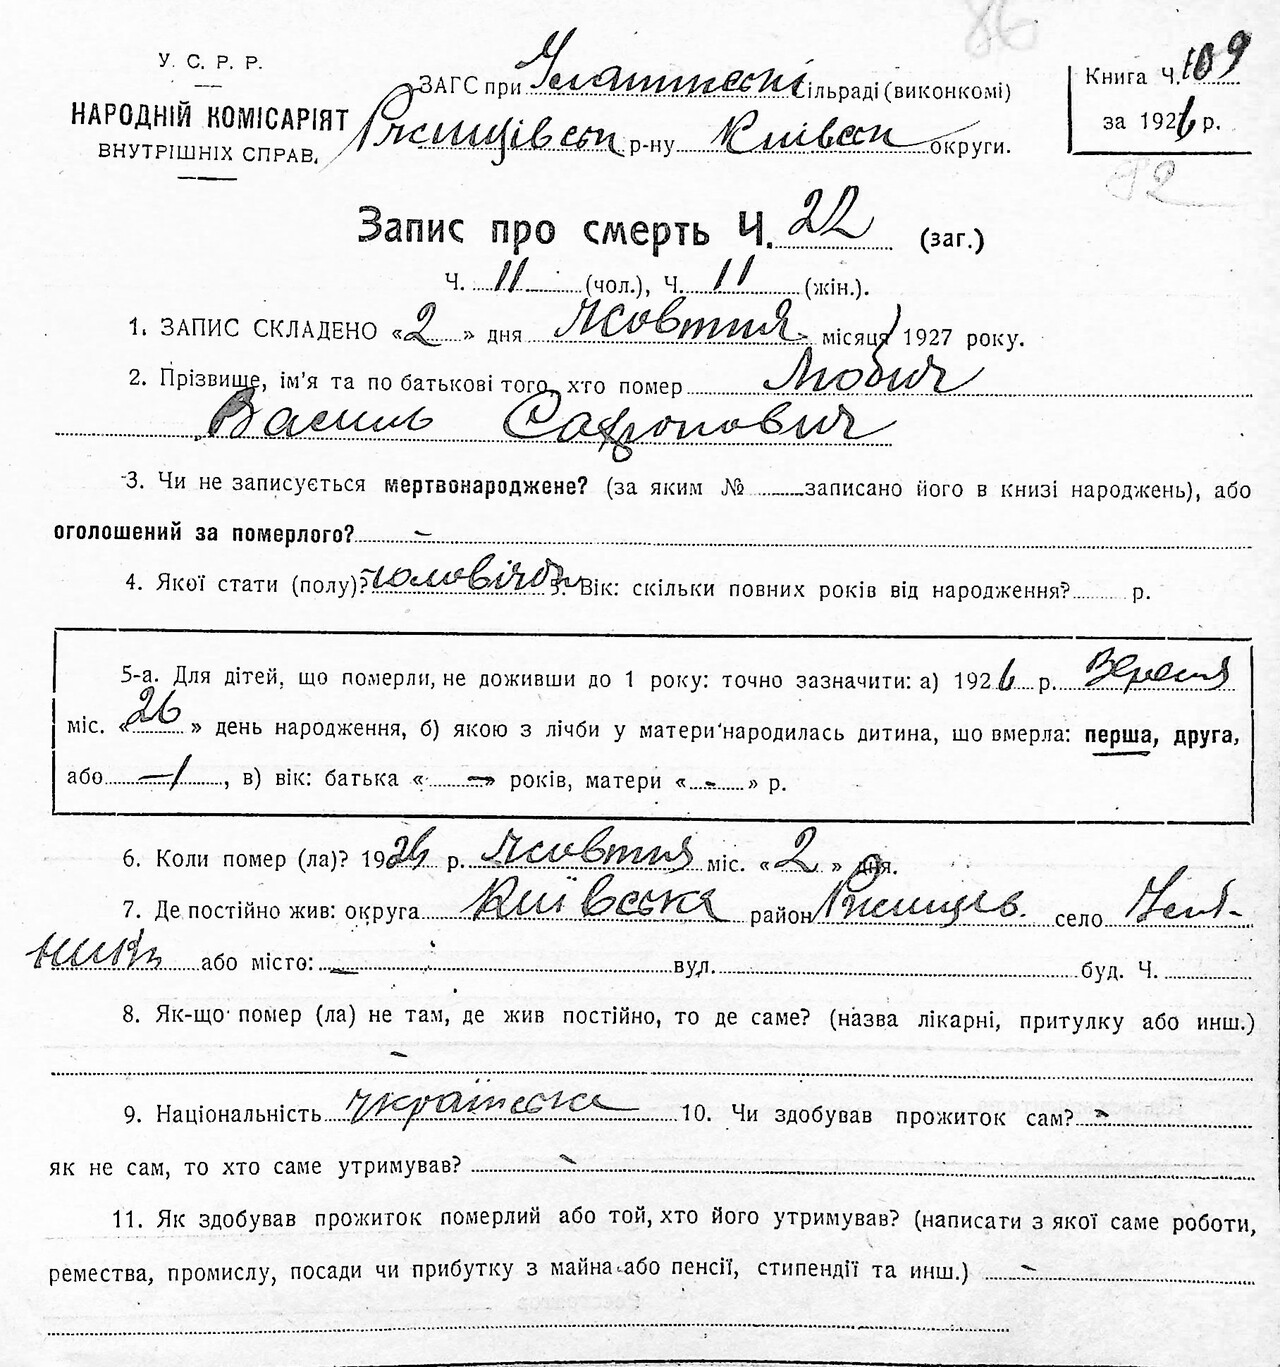 86
У. С. Р. Р.
НАРОДНІЙ КОМІСАРІЯТ
ВНУТРІШНІХ СПРАВ.
ЗАГС при сільраді (виконкомі)
Ржищівськ р-ну Київськ округи.
Книга Ч. 109
за 1926 р.
92
Запис про смерть Ч. 22 (заг.)
Ч. 11 (чол.), Ч. 11 (жін.).
1. ЗАПИС СКЛАДЕНО «2» дня Жовтня місяця 1927 року.
2. Прізвище, ім'я та по батькові того, хто помер Любич
Василь Сафронович
3. Чи не записується мертвонароджене? (за яким № записано його в книзі народжень), або
оголошений за померлого? -
4. Якої стати (полу)? чоловічої 5. Вік: скільки повних років від народження? р.
5-а. Для дітей, що померли, не доживши до 1 року: точно зазначити: а) 1926 р. Вересня
міс. «26» день народження, б) якою з лічби у матери народилась дитина, що вмерла: перша, друга,
або —, в) вік: батька «-» років, матери «-» р.
6. Коли помер (ла)? 1926 р. Жовтня міс. «2» дня.
7. Де постійно жив: округа Київська район Ржищів. село
або місто: — вул. буд. Ч.
8. Як-що помер (ла) не там, де жив постійно, то де саме? (назва лікарні, притулку або инш.)
-
9. Національність українська 10. Чи здобував прожиток сам? -
як не сам, то хто саме утримував? -
11. Як здобував прожиток померлий або той, хто його утримував? (написати з якої саме роботи,
ремества, промислу, посади чи прибутку з майна або пенсії, стипендії та инш.) -